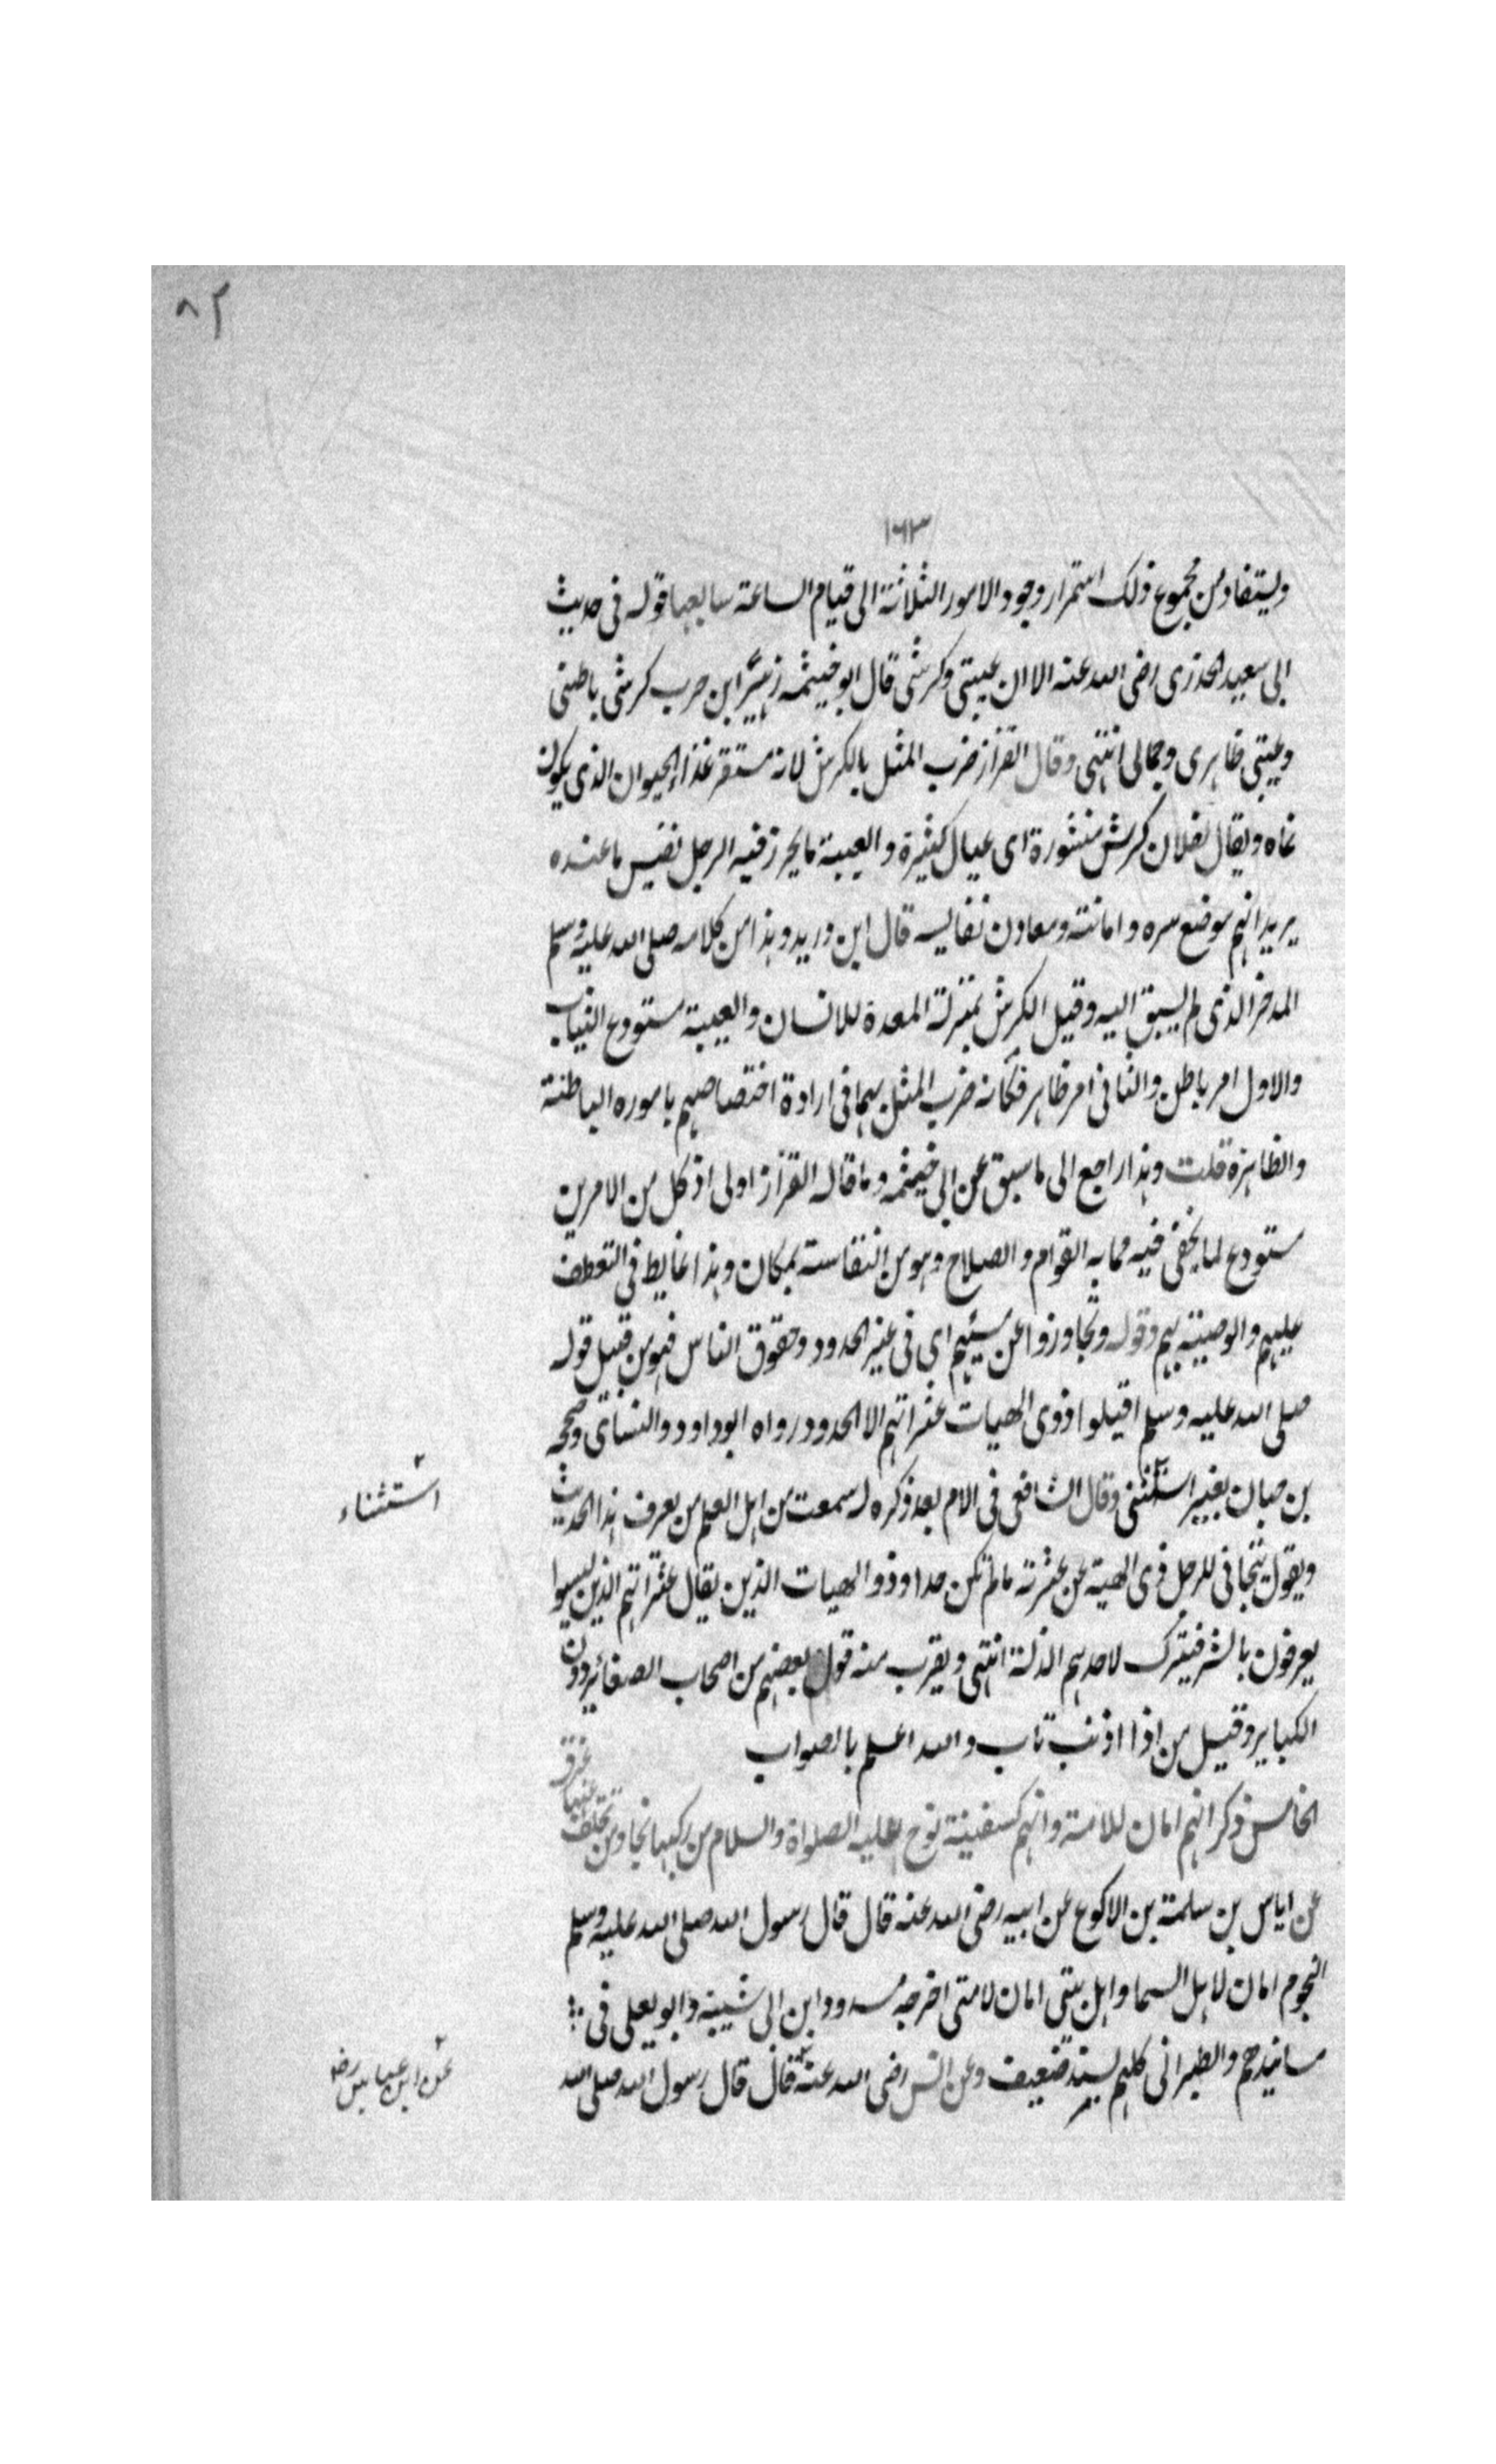 ٨٢
١٦٣
ويستفاد من مجموع ذلك استمرار وجود الامور الثلاثة الى قيام الساعة سابعها قوله فى حديث
ابى سعيد الخدرى رضى الله عنه الا ان عيبتى وكرشى قال ابو خيثمه زهير ابن حرب كرشى باطنى
وعيبتى ظاهرى وجمالى انتهى وقال القزاز ضرب المثل بالكرش لانه مستقر غذاء الحيوان الذى يكون
نماه ويقال لفلان كرش منثورة اى عيال كثيرة والعيبة ما يحرز فيه الرجل نفيس ما عنده
يريد انهم موضع سره وامانته ومعادن نفايسه قال ابن دريد وهذا من كلامه صلى الله عليه وسلم
الموجز الذى لم يسبق اليه وقيل الكرش بمنزلة المعدة للانسان والعيبة مستودع الثياب
والاول امر باطن والثانى امر ظاهر فكانه ضرب المثل بهما فى ارادة اختصاصهم باموره الباطنة
والظاهرة قلت وهذا راجع الى ما سبق عن ابى خيثمه وما قاله القزاز اولى اذ كل من الامرين
مستودع لما يخفى فيه مما به القوام والصلاح وهو من النفاسة بمكان وهذا غايط فى التعطف
عليهم والوصية بهم وقوله وتجاوزوا عن مسيئهم اى فى غير الحدود وحقوق الناس فهو من قبيل قوله
صلى الله عليه وسلم اقيلوا ذوى الهيات عثراتهم الا الحدود رواه ابوداود والنسائى وصححه
بن حبان بغير استثنى وقال الشافعى فى الام بعد ذكره له سمعت من اهل العلم من يعرف هذا الحديث
استثناء
ويقول يتجافى للرجل ذى الهية عن عثرته ما لم تكن حدا وذوا الهيات الذين يقال عثراتهم الذين ليسوا
يعرفون بالشر فيترك لاحدهم الذلة انتهى ويقرب منه قول بعضهم من اصحاب الصغائر دون
الكباير وقيل من اذا اذنب تاب والله اعلم بالصواب
الخامس ذكر انهم امان للامة وانهم كسفينة نوح عليه الصلواة والسلام من ركبها نجا ومن تخلف عنها غرق
عن اياس بن سلمة بن الاكوع عن ابيه رضى الله عنه قال قال رسول الله صلى الله عليه وسلم
النجوم امان لاهل السما واهل بيتى امان لامتى اخرجه مسدد وابن ابى شيبة وابو يعلى فى
مسانيدهم والطبرانى كلهم بسند ضعيف وعن انس رضى الله عنه قال قال رسول الله صلى الله
عن ابن عباس رضه